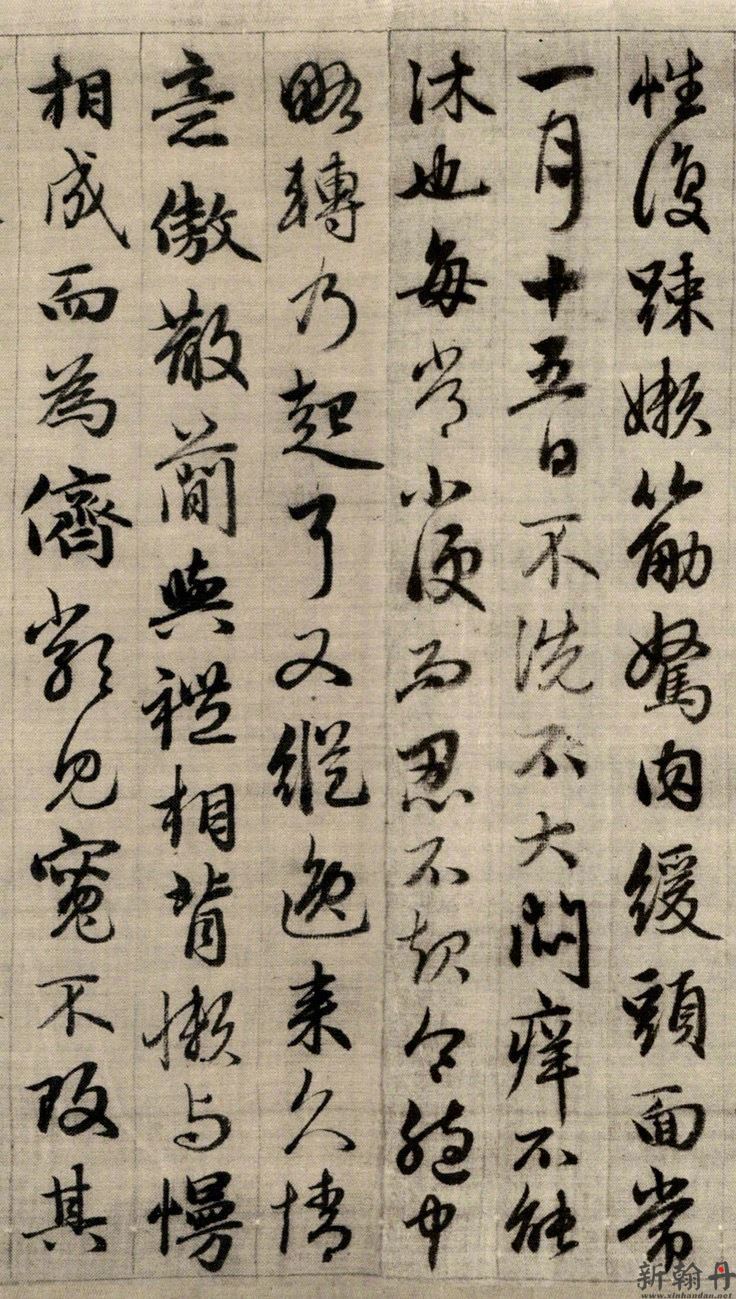 性復踈嬾筋駑肉緩頭面常
一月十五日不洗不大悶痒不能
沐也每常小便而忍不起令胞中
略轉乃起耳又縱逸来久情
意傲散簡與禮相背懶与慢
相成而為儕類見寬不攻其
新翰丹
www.xinhandan.net